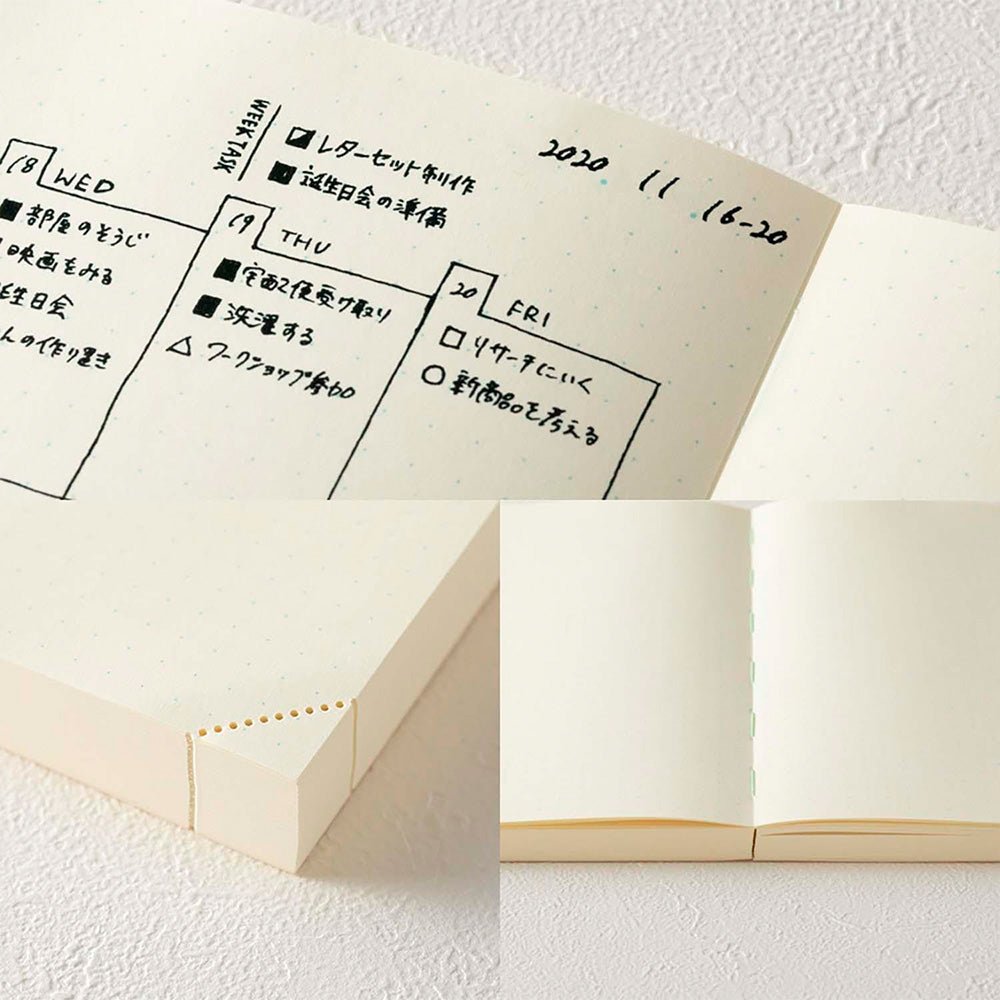 2020 11 16-20
WEEK TASK
レターセット制作
誕生日会の準備
18 WED
部屋のそうじ
映画をみる
生日会
んの作り置き
19 THU
宅配便受け取り
洗濯する
ワークショップ参加
20 FRI
リサーチにいく
新商品を考える